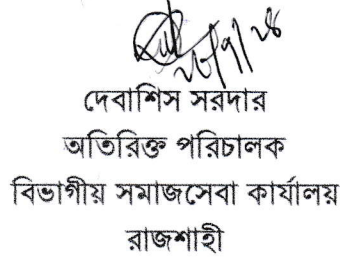 দেবাশিস সরদার
অতিরিক্ত পরিচালক
বিভাগীয় সমাজসেবা কার্যালয়
রাজশাহী